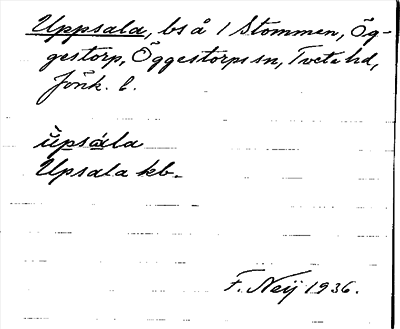 Uppsala, bs å 1 Stommen, Ög-
gestorp, Öggestorps sn, Tveta hd,
Jönk. l.
ùpsála
Upsala kb.
F. Neij 1936.